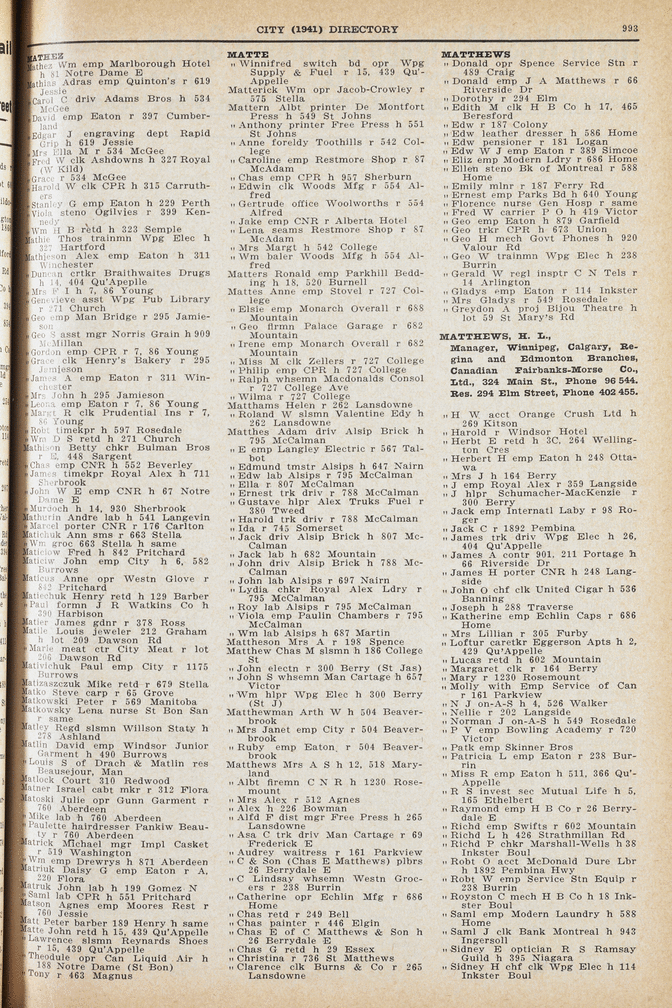 CITY (1941) DIRECTORY 993
MATHEZ
Mathez Wm emp Marlborough Hotel
h 81 Notre Dame E
Mathias Adras emp Quinton's r 619
Jessie
" Carol C driv Adams Bros h 534
McGee
" David emp Eaton r 397 Cumber-
land
" Edgar J engraving dept Rapid
Grip h 619 Jessie
" Mrs Ella M r 534 McGee
" Fred W clk Ashdowns h 327 Royal
(W Kild)
" Grace r 534 McGee
" Harold W clk CPR h 315 Carruth-
ers
" Stanley G emp Eaton h 229 Perth
" Viola steno Ogilvies r 399 Ken-
nedy
" Wm H B retd h 323 Semple
Mathie Thos trainmn Wpg Elec h
327 Hartford
Mathieson Alex emp Eaton h 311
Winchester
" Duncan crtkr Braithwaites Drugs
h 14, 404 Qu'Appelle
" Mrs F I h 7, 86 Young
" Genevieve asst Wpg Pub Library
r 271 Church
" Geo emp Man Bridge r 295 Jamie-
son
" Geo S asst mgr Norris Grain h 909
McMillan
" Gordon emp CPR r 7, 86 Young
" Grace clk Henry's Bakery r 295
Jamieson
" James A emp Eaton r 311 Win-
chester
" Mrs John h 295 Jamieson
" Leona emp Eaton r 7, 86 Young
" Margt R clk Prudential Ins r 7,
86 Young
" Robt timekpr h 597 Rosedale
" Wm D S retd h 271 Church
Mathison Betty chkr Bulman Bros
r E, 448 Sargent
" Chas emp CNR h 552 Beverley
" James timekpr Royal Alex h 711
Sherbrook
" John W E emp CNR h 67 Notre
Dame E
" Murdoch h 14, 930 Sherbrook
Mathurin Andre lab h 541 Langevin
" Marcel porter CNR r 176 Carlton
Matichuk Ann sms r 663 Stella
" Wm groc 663 Stella h same
Maticiow Fred h 842 Pritchard
Maticiw John emp City h 6, 582
Burrows
Maticus Anne opr Westn Glove r
842 Pritchard
Matiechuk Henry retd h 129 Barber
" Paul formn J R Watkins Co h
390 Harbison
Matier James gdnr r 378 Ross
Matile Louis jeweler 212 Graham
h lot 209 Dawson Rd
" Marie meat ctr City Meat r lot
206 Dawson Rd
Mativichuk Paul emp City r 1175
Burrows
Matizaszczuk Mike retd r 679 Stella
Matko Steve carp r 65 Grove
Matkowski Peter r 569 Manitoba
Matkowsky Lena nurse St Bon San
r same
Matley Regd slsmn Willson Staty h
278 Ashland
Matlin David emp Windsor Junior
Garment h 490 Burrows
" Louis S of Drach & Matlin res
Beausejour, Man
Matlock Court 310 Redwood
Matner Israel cabt mkr r 312 Flora
Matoski Julie opr Gunn Garment r
760 Aberdeen
" Mike lab h 760 Aberdeen
" Paulette hairdresser Pankiw Beau-
ty r 760 Aberdeen
Matrick Michael mgr Impl Casket
r 519 Washington
" Wm emp Drewrys h 871 Aberdeen
Matriuk Daisy G emp Eaton r A,
220 Flora
Matruk John lab h 199 Gomez N
" Saml lab CPR h 551 Pritchard
Matson Agnes emp Moores Rest r
760 Jessie
Matt Peter barber 189 Henry h same
Matte John retd h 15, 439 Qu'Appelle
" Lawrence slsmn Reynards Shoes
r 15, 439 Qu'Appelle
" Theodule opr Can Liquid Air h
188 Notre Dame (St Bon)
" Tony r 463 Magnus
MATTE
" Winnifred switch bd opr Wpg
Supply & Fuel r 15, 439 Qu'-
Appelle
Matterick Wm opr Jacob-Crowley r
575 Stella
Matters Albt printer De Montfort
Press h 549 St Johns
" Anthony printer Free Press h 551
St Johns
" Anne foreldy Toothills r 542 Col-
lege
" Caroline emp Restmore Shop r 87
McAdam
" Chas emp CPR h 957 Sherburn
" Edwin clk Woods Mfg r 554 Al-
fred
" Gertrude office Woolworths r 554
Alfred
" Jake emp CNR r Alberta Hotel
" Lena seams Restmore Shop r 87
McAdam
" Mrs Margt h 542 College
" Wm baler Woods Mfg h 554 Al-
fred
Matters Ronald emp Parkhill Bedd-
ing h 18, 520 Burnell
Mattes Anne emp Stovel r 727 Col-
lege
" Elsie emp Monarch Overall r 688
Mountain
" Geo firmn Palace Garage r 682
Mountain
" Irene emp Monarch Overall r 682
Mountain
" Miss M clk Zellers r 727 College
" Philip emp CPR h 727 College
" Ralph whsemn Macdonalds Consol
r 727 College Ave
" Wilma r 727 College
Matthams Helen r 262 Lansdowne
" Roland W slsmn Valentine Edy h
262 Lansdowne
Matthes Adam driv Alsip Brick h
795 McCalman
" E emp Langley Electric r 567 Tal-
bot
" Edmund tmstr Alsips h 647 Nairn
" Edw lab Alsips r 795 McCalman
" Ella r 807 McCalman
" Ernest trk driv r 788 McCalman
" Gustave hlpr Alex Truks Fuel r
380 Tweed
" Harold trk driv r 788 McCalman
" Ida r 745 Somerset
" Jack driv Alsip Brick h 807 Mc-
Calman
" Jack lab h 682 Mountain
" John driv Alsip Brick h 788 Mc-
Calman
" John lab Alsips r 697 Nairn
" Lydia chkr Royal Alex Ldry r
795 McCalman
" Roy lab Alsips r 795 McCalman
" Viola emp Paulin Chambers r 795
McCalman
" Wm lab Alsips h 687 Martin
Mattheson Mrs A r 198 Spence
Matthew Chas M slsmn h 186 College
St
" John electn r 300 Berry (St Jas)
" John S whsemn Man Cartage h 657
Victor
" Wm hlpr Wpg Elec h 300 Berry
(St J)
Matthewman Arth W h 504 Beaver-
brook
" Mrs Janet emp City r 504 Beaver-
brook
" Ruby emp Eaton, r 504 Beaver-
brook
Matthews Mrs A S h 12, 518 Mary-
land
" Albt firemn C N R h 1230 Rose-
mount
" Mrs Alex r 512 Agnes
" Alex h 226 Bowman
" Alfd F dist mgr Free Press h 265
Lansdowne
" Asa C trk driv Man Cartage r 69
Frederick E
" Audrey waitress r 161 Parkview
" C & Son (Chas E Matthews) plbrs
26 Berrydale E
" C Lindsay whsemn Westn Groc-
ers r 238 Burrin
" Catherine opr Echlin Mfg r 686
Home
" Chas retd r 249 Bell
" Chas painter r 446 Elgin
" Chas E of C Matthews & Son h
26 Berrydale E
" Chas G retd h 29 Essex
" Christina r 736 St Matthews
" Clarence clk Burns & Co r 265
Lansdowne
MATTHEWS
" Donald opr Spence Service Stn r
489 Craig
" Donald emp J A Matthews r 66
Riverside Dr
" Dorothy r 294 Elm
" Edith M clk H B Co h 17, 465
Beresford
" Edw r 187 Colony
" Edw leather dresser h 586 Home
" Edw pensioner r 181 Logan
" Edw W J emp Eaton r 389 Simcoe
" Eliz emp Modern Ldry r 686 Home
" Ellen steno Bk of Montreal r 588
Home
" Emily mlnr r 187 Ferry Rd
" Ernest emp Parks Bd h 640 Young
" Florence nurse Gen Hosp r same
" Fred W carrier P O h 419 Victor
" Geo emp Eaton h 879 Garfield
" Geo trkr CPR h 673 Union
" Geo H mech Govt Phones h 920
Valour Rd
" Geo W trainmn Wpg Elec h 238
Burrin
" Gerald W regl insptr C N Tels r
14 Arlington
" Gladys emp Eaton r 114 Inkster
" Mrs Gladys r 549 Rosedale
" Greydon A proj Bijou Theatre h
lot 59 St Mary's Rd
MATTHEWS, H. L.,
Manager, Winnipeg, Calgary, Re-
gina and Edmonton Branches,
Canadian Fairbanks-Morse Co.,
Ltd., 324 Main St., Phone 96 544.
Res. 294 Elm Street, Phone 402 455.
" H W acct Orange Crush Ltd h
269 Kitson
" Harold r Windsor Hotel
" Herbt E retd h 3C, 264 Welling-
ton Cres
" Herbert H emp Eaton h 248 Otta-
wa
" Mrs J h 164 Berry
" J emp Royal Alex r 359 Langside
" J hlpr Schumacher-MacKenzie r
300 Berry
" Jack emp Internatl Laby r 98 Ro-
ger
" Jack C r 1892 Pembina
" James trk driv Wpg Elec h 26,
404 Qu'Appelle
" James A contr 901, 211 Portage h
66 Riverside Dr
" James H porter CNR h 248 Lang-
side
" John O chf clk United Cigar h 536
Banning
" Joseph h 288 Traverse
" Katherine emp Echlin Caps r 686
Home
" Mrs Lillian r 305 Furby
" Loftur caretkr Eggerson Apts h 2,
429 Qu'Appelle
" Lucas retd h 602 Mountain
" Margaret clk r 164 Berry
" Mary r 1230 Rosemount
" Molly with Emp Service of Can
r 161 Parkview
" N J on-A-S h 4, 526 Walker
" Nellie r 202 Langside
" Norman J on-A-S h 549 Rosedale
" P V emp Bowling Academy r 720
Victor
" Patk emp Skinner Bros
" Patricia L emp Eaton r 238 Bur-
rin
" Miss R emp Eaton h 511, 366 Qu'-
Appelle
" R S invest sec Mutual Life h 5,
165 Ethelbert
" Raymond emp H B Co r 26 Berry-
dale E
" Richd emp Swifts r 602 Mountain
" Richd L h 426 Strathmillan Rd
" Richd P chkr Marshall-Wells h 38
Inkster Boul
" Robt O acct McDonald Dure Lbr
h 1892 Pembina Hwy
" Robt W emp Service Stn Equip r
238 Burrin
" Royston C mech H B Co h 18 Ink-
ster Boul
" Saml emp Modern Laundry h 588
Home
" Saml J clk Bank Montreal h 943
Ingersoll
" Sidney E optician R S Ramsay
Guild h 395 Niagara
" Sidney H chf clk Wpg Elec h 114
Inkster Boul